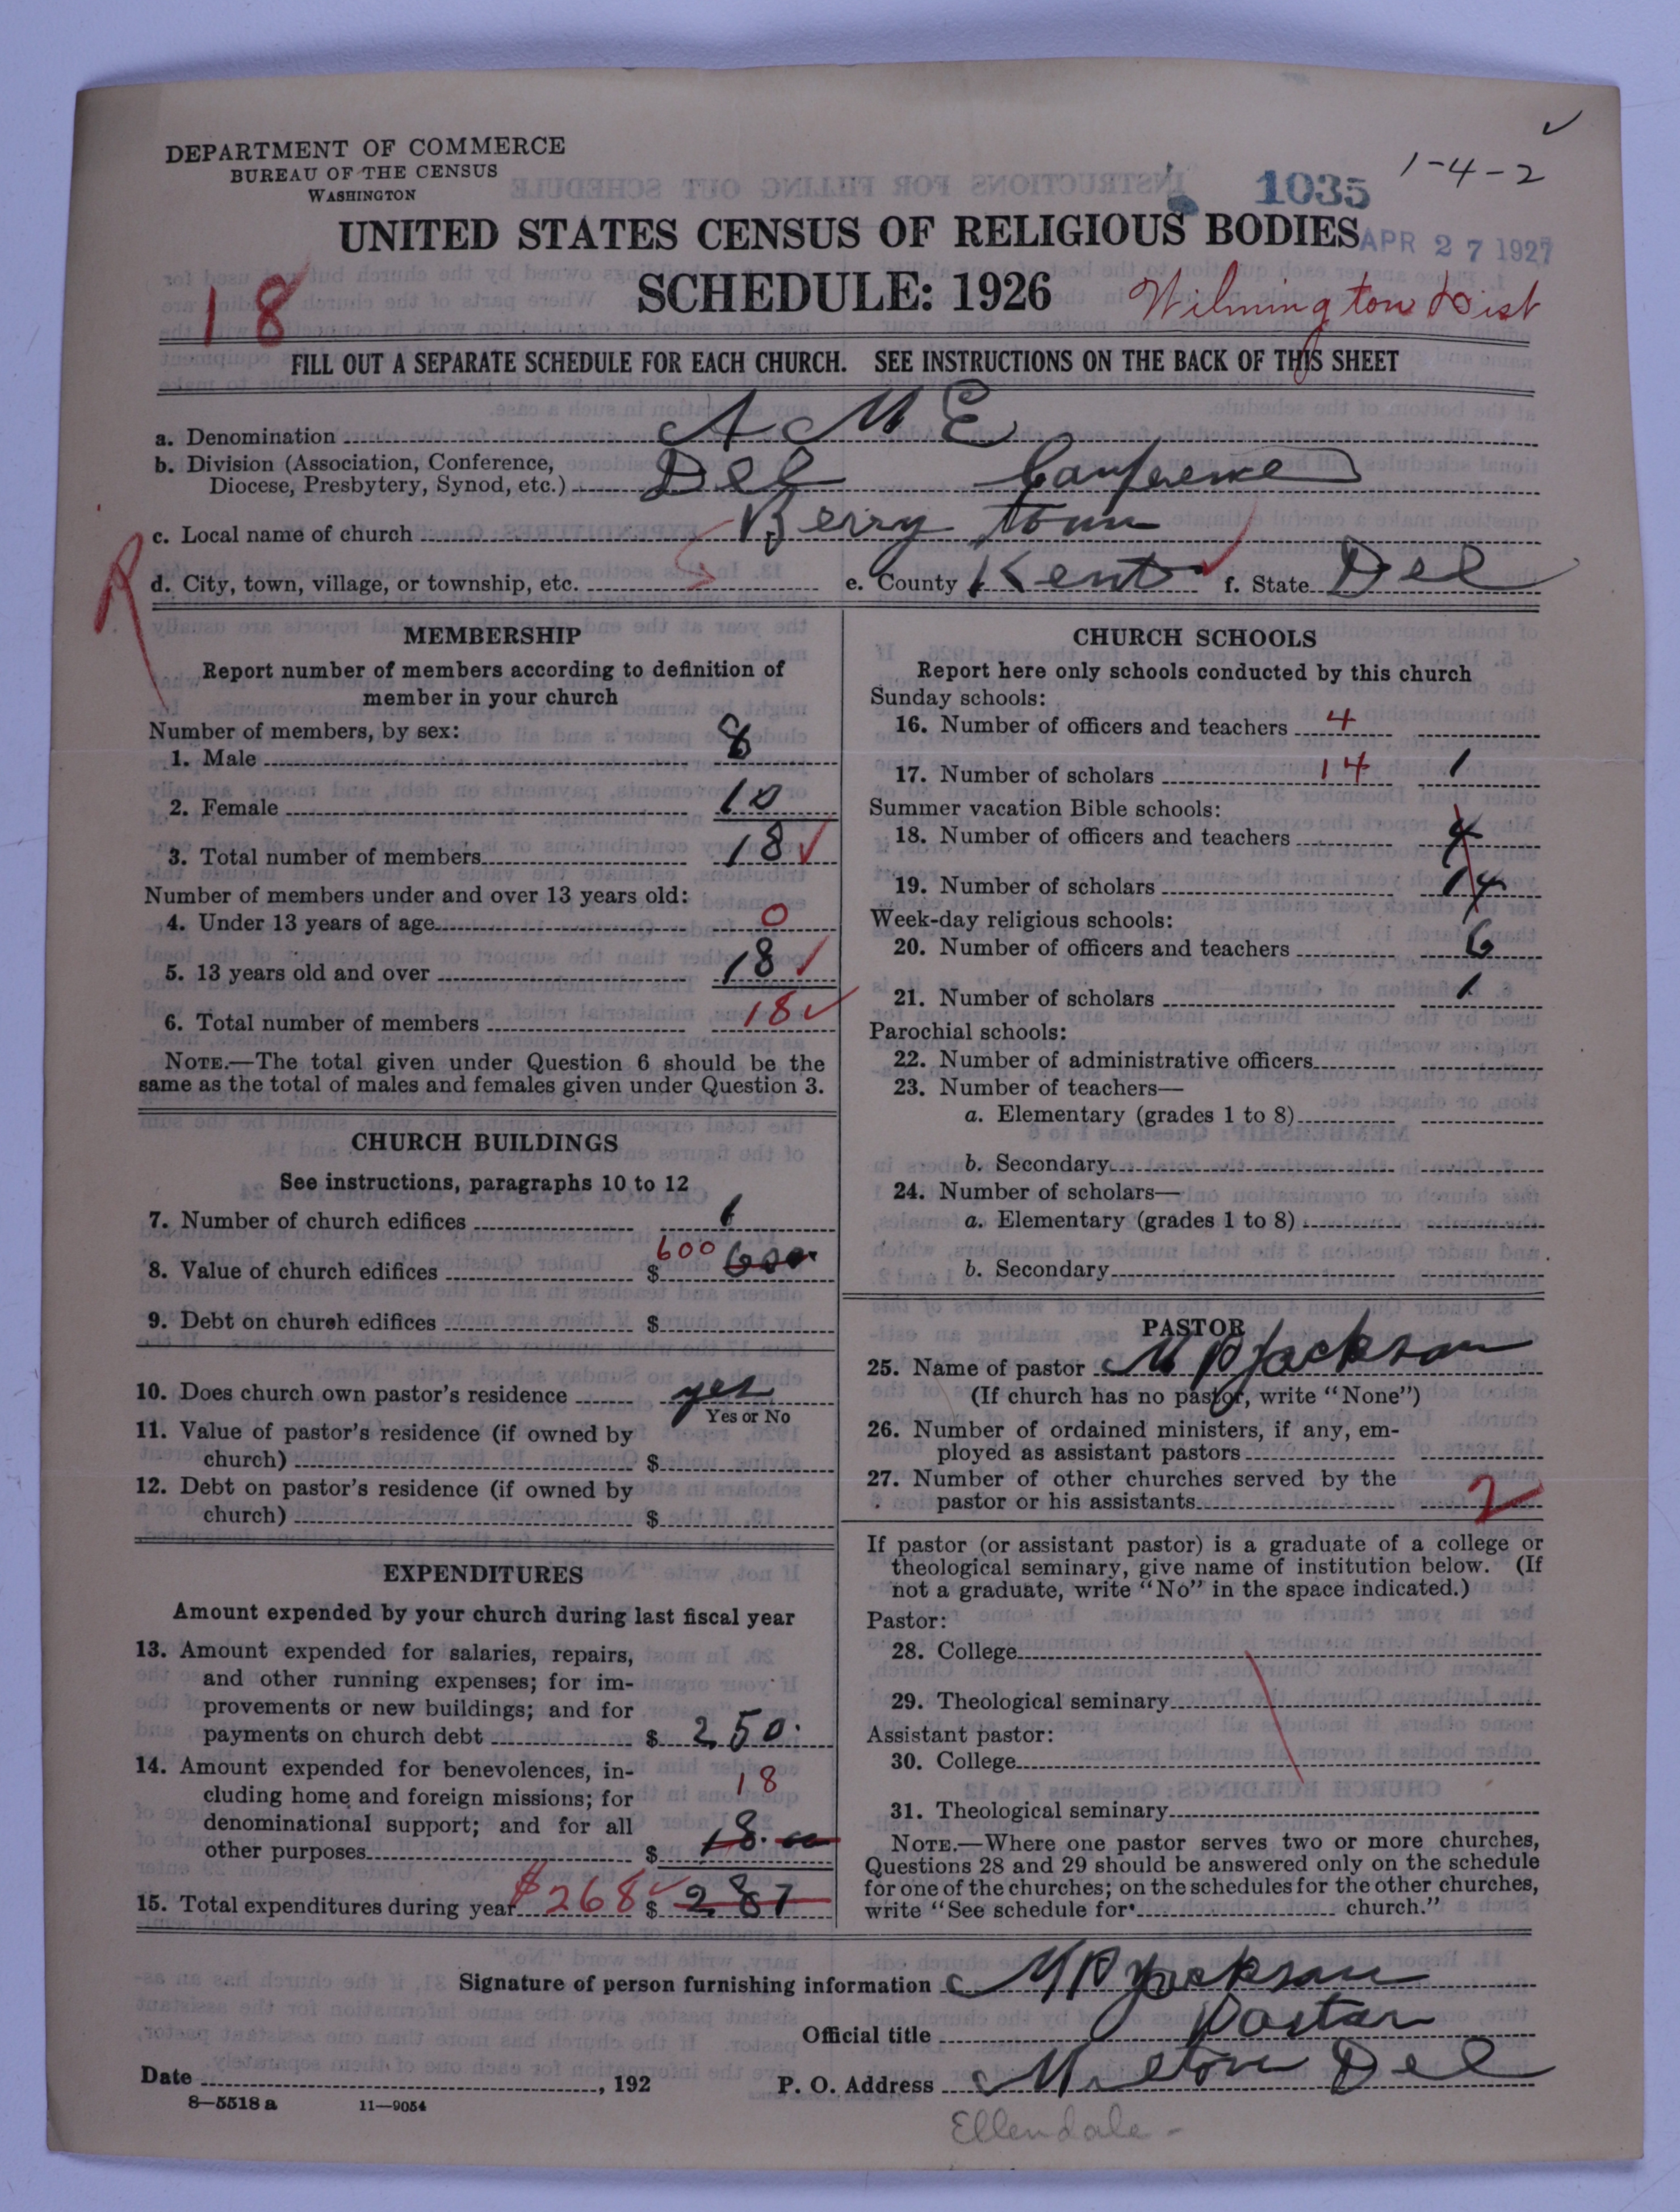 DEPARTMENT OF COMMERCE
BUREAU OF THE CENSUS
WASHINGTON
1035
1-4-2
UNITED STATES CENSUS OF RELIGIOUS BODIES
APR 27 1927
SCHEDULE: 1926
18
Wilmington Dist
FILL OUT A SEPARATE SCHEDULE FOR EACH CHURCH. SEE INSTRUCTIONS ON THE BACK OF THIS SHEET
a. Denomination A M E
b. Division (Association, Conference,
Diocese, Presbytery, Synod, etc.) Del Conference
c. Local name of church Berry town
R
d. City, town, village, or township, etc. e. County Kent f. State Del
MEMBERSHIP
Report number of members according to definition of
member in your church
Number of members, by sex:
1. Male 8
2. Female 10
3. Total number of members 18
Number of members under and over 13 years old:
4. Under 13 years of age 0
5. 13 years old and over 18
6. Total number of members 18
NOTE.—The total given under Question 6 should be the
same as the total of males and females given under Question 3.
CHURCH BUILDINGS
See instructions, paragraphs 10 to 12
7. Number of church edifices 1
8. Value of church edifices $ 600 600
9. Debt on church edifices $
10. Does church own pastor's residence yes
Yes or No
11. Value of pastor's residence (if owned by
church) $
12. Debt on pastor's residence (if owned by
church) $
EXPENDITURES
Amount expended by your church during last fiscal year
13. Amount expended for salaries, repairs,
and other running expenses; for im-
provements or new buildings; and for
payments on church debt $ 250
14. Amount expended for benevolences, in-
cluding home and foreign missions; for 18
denominational support; and for all
other purposes $ 18.00
15. Total expenditures during year $268 $ 287
CHURCH SCHOOLS
Report here only schools conducted by this church
Sunday schools:
16. Number of officers and teachers 4
17. Number of scholars 14 1
Summer vacation Bible schools:
18. Number of officers and teachers 4
19. Number of scholars 14
Week-day religious schools:
20. Number of officers and teachers 6
21. Number of scholars 1
Parochial schools:
22. Number of administrative officers
23. Number of teachers—
a. Elementary (grades 1 to 8)
b. Secondary
24. Number of scholars—
a. Elementary (grades 1 to 8)
b. Secondary
PASTOR
25. Name of pastor M P Jackson
(If church has no pastor, write "None")
26. Number of ordained ministers, if any, em-
ployed as assistant pastors
27. Number of other churches served by the
pastor or his assistants 2
If pastor (or assistant pastor) is a graduate of a college or
theological seminary, give name of institution below. (If
not a graduate, write "No" in the space indicated.)
Pastor:
28. College
29. Theological seminary
Assistant pastor:
30. College
31. Theological seminary
NOTE.—Where one pastor serves two or more churches,
Questions 28 and 29 should be answered only on the schedule
for one of the churches; on the schedules for the other churches,
write "See schedule for church."
Signature of person furnishing information M P Jackson
Official title Pastor
Date , 192 P. O. Address Milton Del
8—5518 a 11—9054
Ellendale -